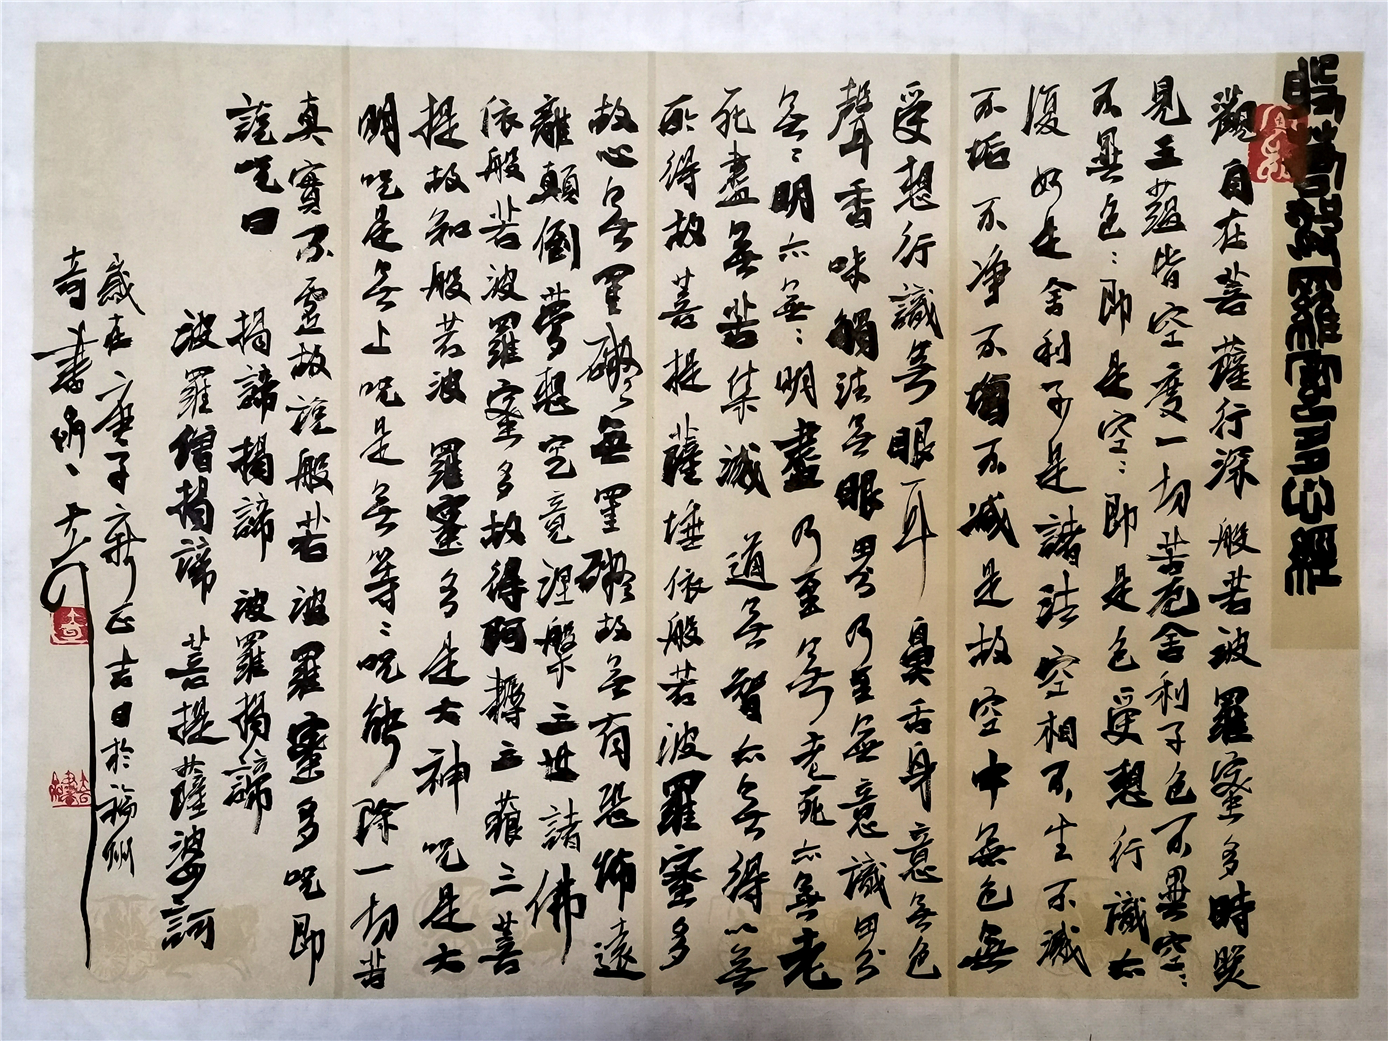 般若波羅蜜多心經
觀自在菩薩行深般若波羅蜜多時照
見五蘊皆空度一切苦厄舍利子色不異空〻
不異色〻即是空〻即是色受想行識亦
復如是舍利子是諸法空相不生不滅
不垢不净不增不減是故空中無色無
受想行識無眼耳鼻舌身意無色
聲香味觸法無眼界乃至無意識界
無〻明亦無〻明盡乃至無老死亦無老
死盡無苦集滅道無智亦無得以無
所得故菩提薩埵依般若波羅蜜多
故心無罣礙〻無罣礙故無有恐怖遠
離顛倒夢想究竟涅槃三世諸佛
依般若波羅蜜多故得阿耨三藐三菩
提故知般若波羅蜜多是大神呪是大
明呪是無上呪是無等〻呪能除一切苦
真實不虛故說般若波羅蜜多呪即
說呪曰
揭諦揭諦波羅揭諦
波羅僧揭諦菩提薩婆訶
歲在庚子新正吉日於福州
奇書